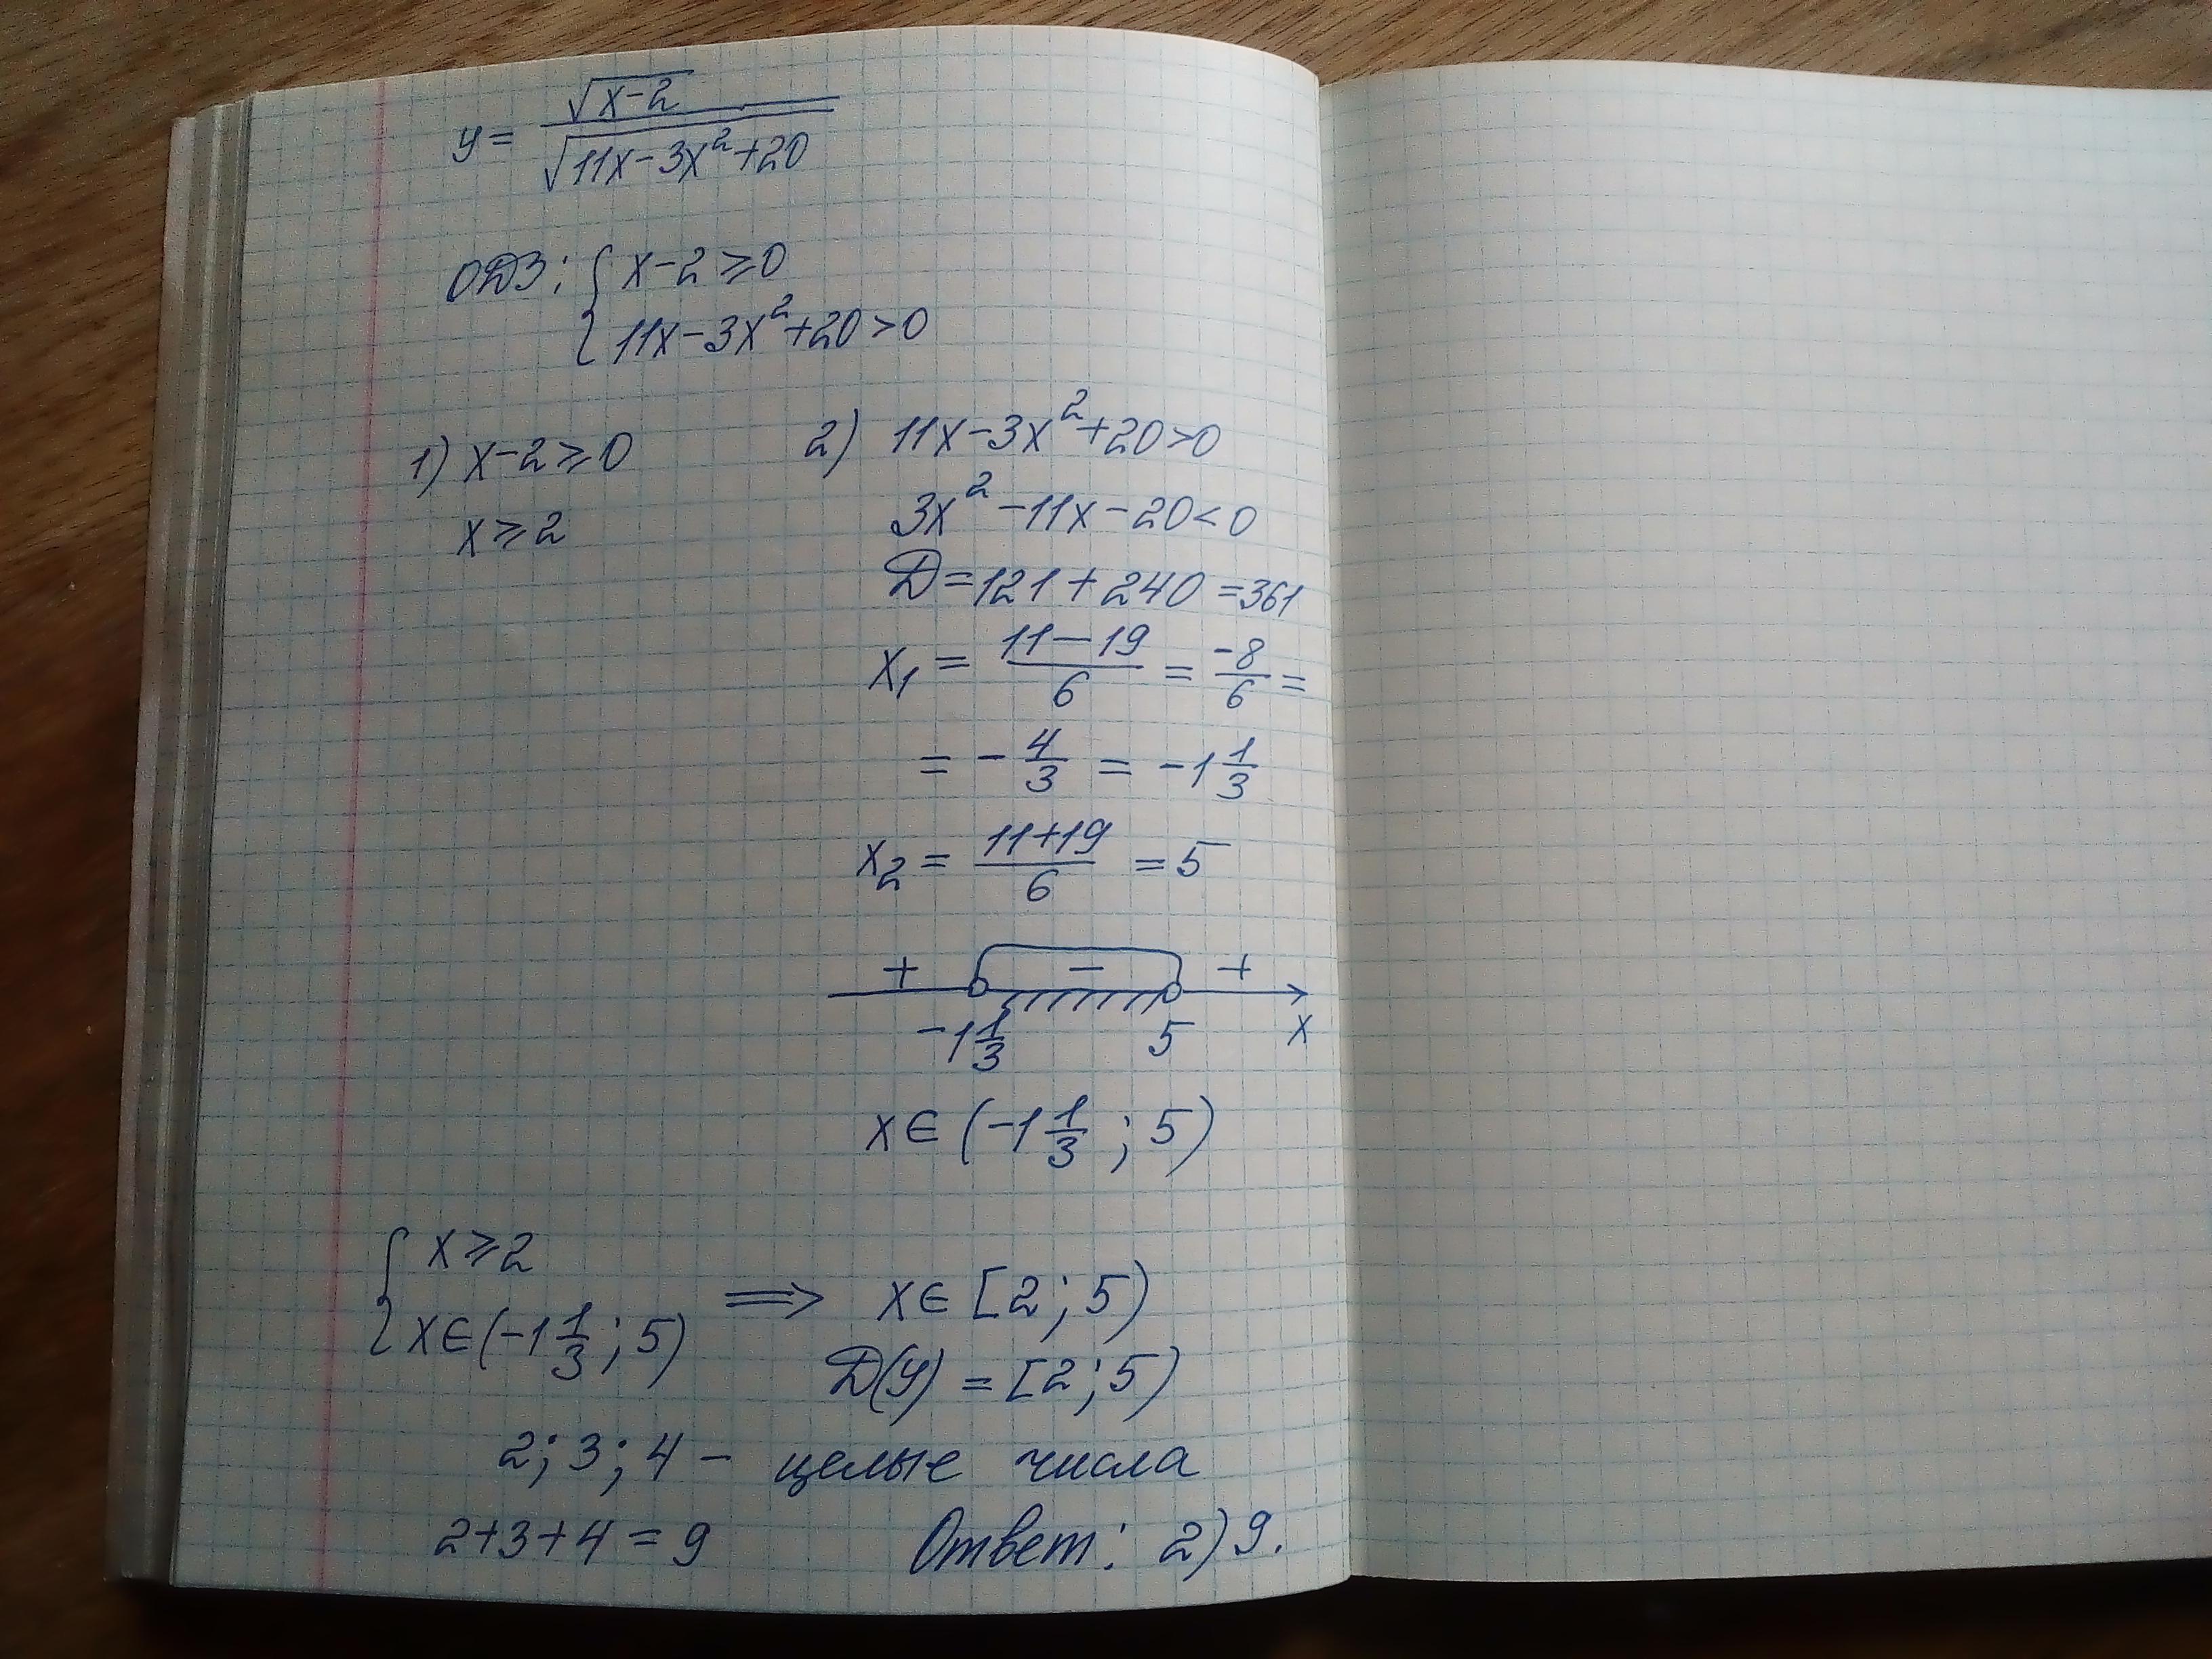 y = √(x-2) / √(11x-3x²+20)
ОДЗ: { x-2 ≥ 0
{ 11x-3x²+20 > 0
1) x-2 ≥ 0
x ≥ 2
2) 11x-3x²+20 > 0
3x²-11x-20 < 0
D = 121 + 240 = 361
x₁ = (11-19)/6 = -8/6 =
= -4/3 = -1 1/3
x₂ = (11+19)/6 = 5
+ - +
-1 1/3 5 x
x ∈ (-1 1/3; 5)
{ x ≥ 2
{ x ∈ (-1 1/3; 5) ⟹ x ∈ [2; 5)
D(y) = [2; 5)
2; 3; 4 - целые числа
2+3+4 = 9
Ответ: 2) 9.